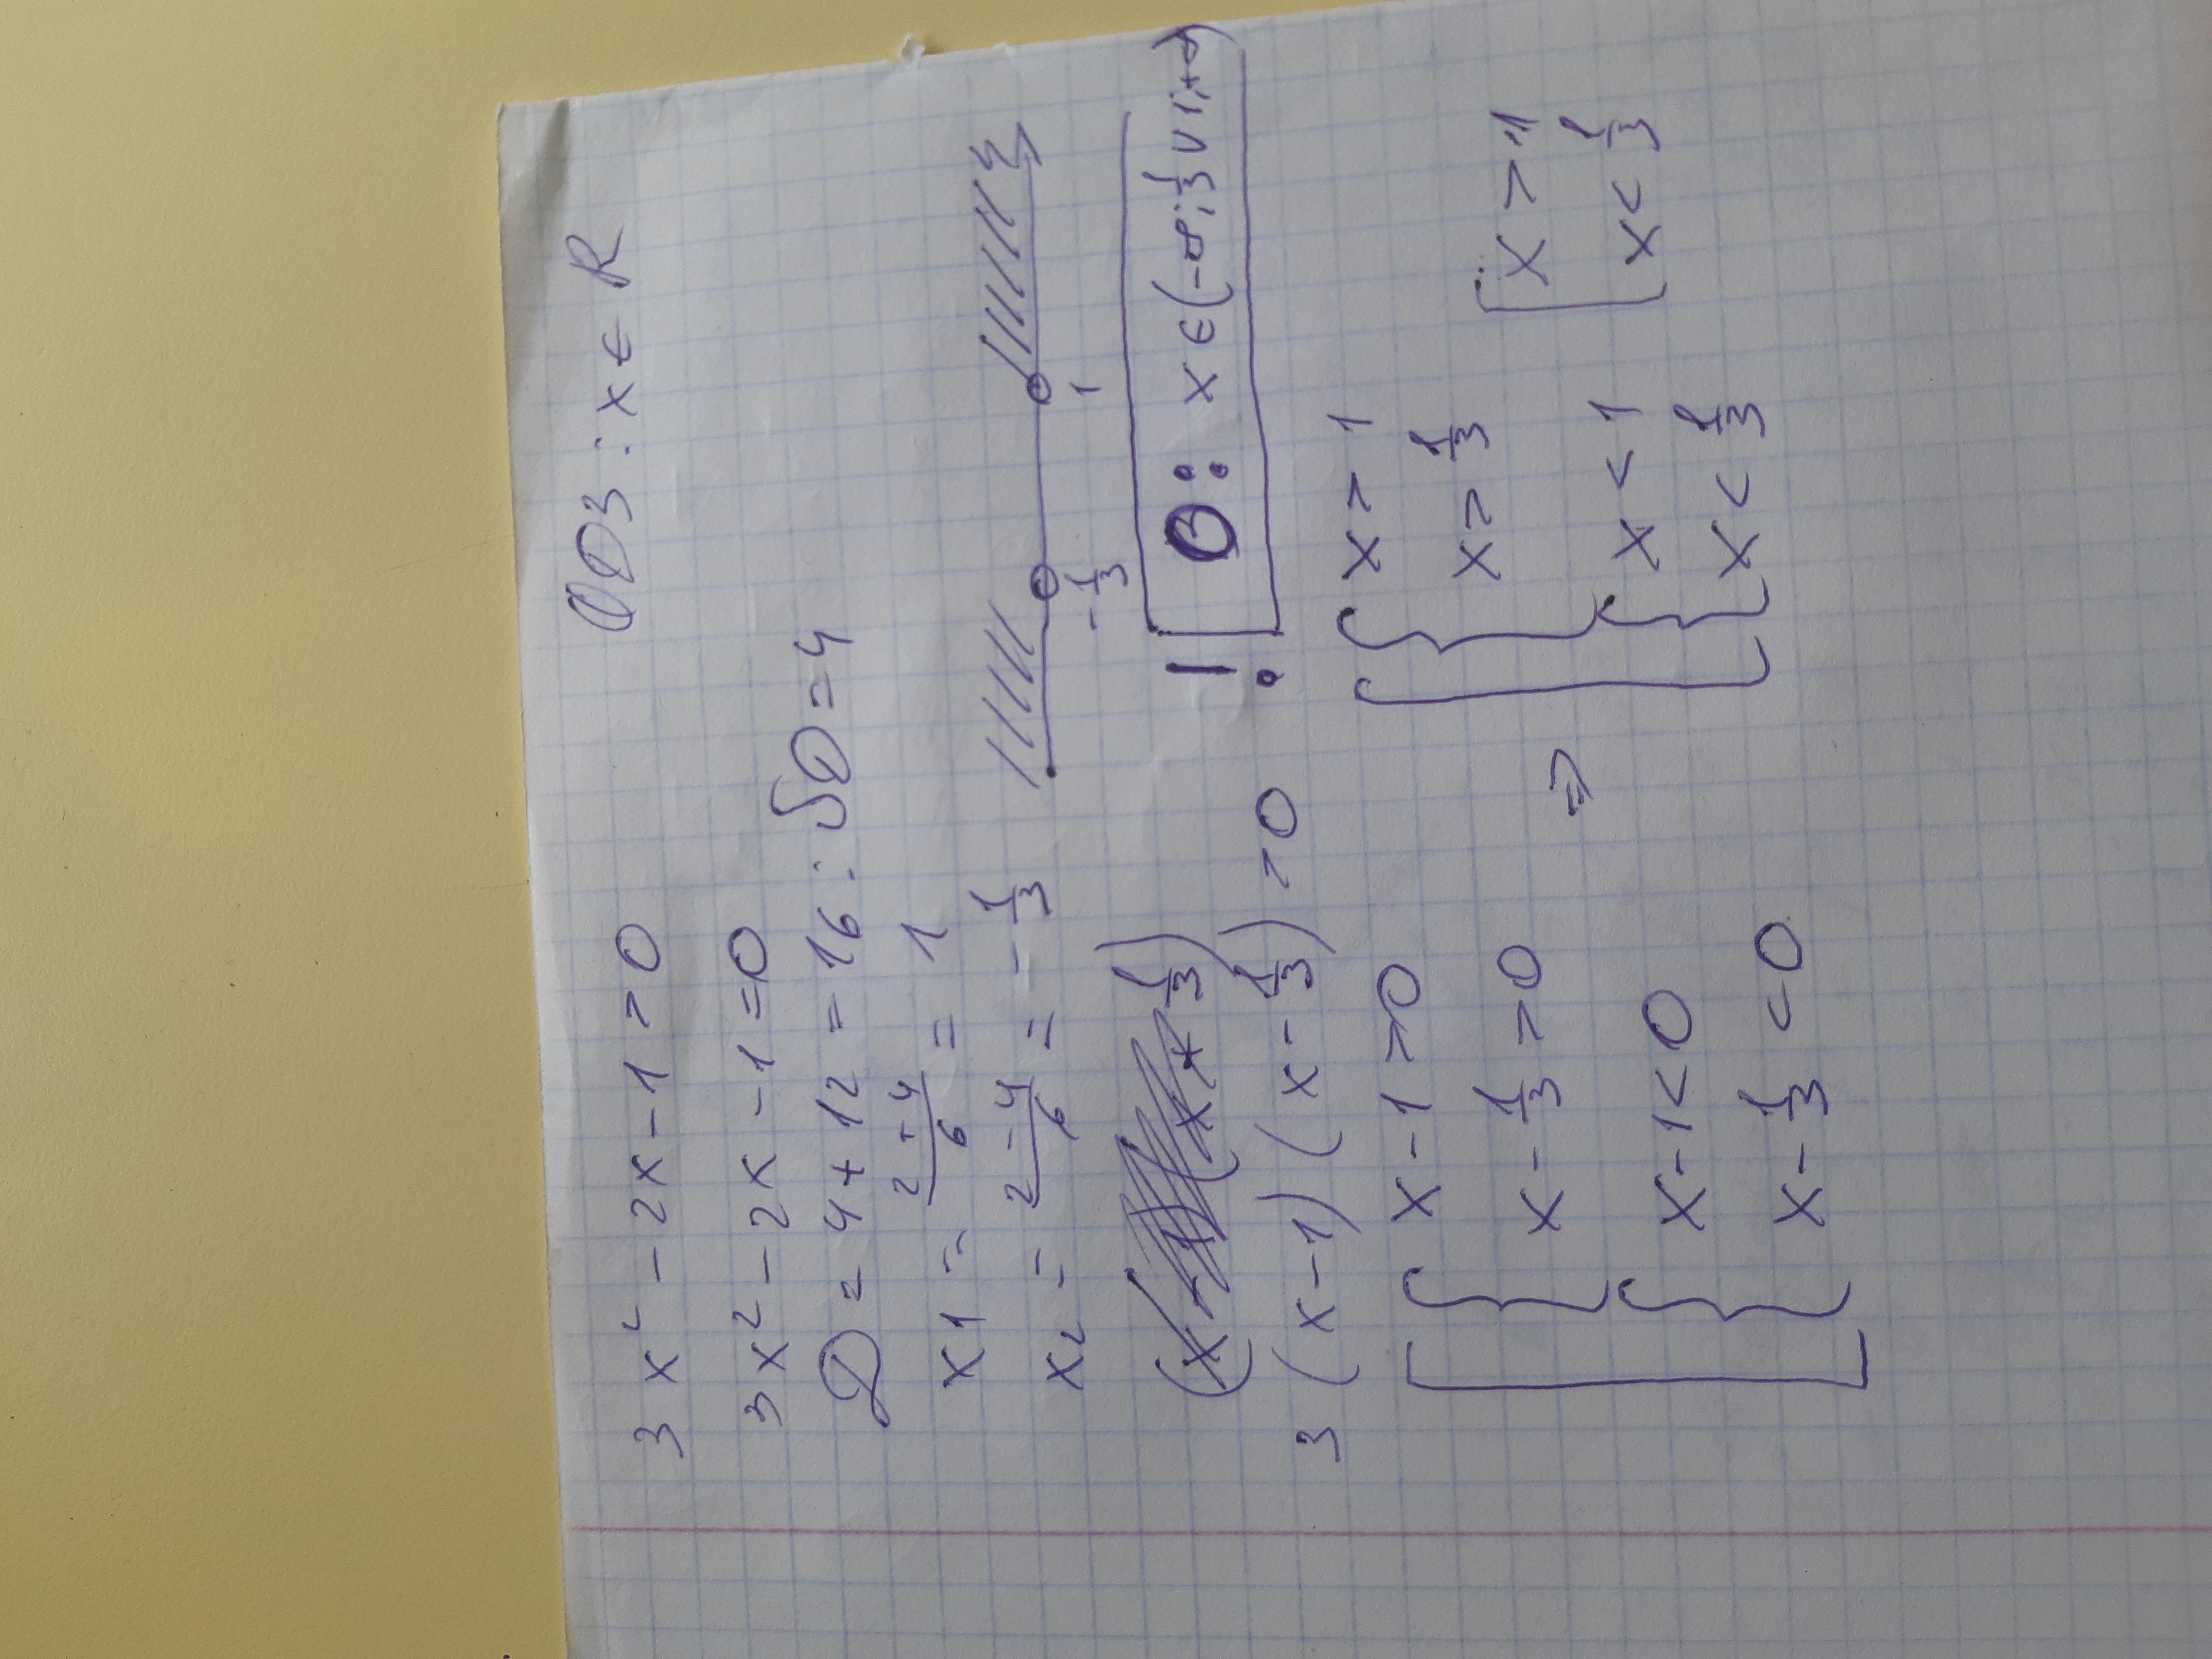 3x² - 2x - 1 > 0
ОДЗ: x ∈ R
3x² - 2x - 1 = 0
D = 4 + 12 = 16 ; √D = 4
x1 = (2+4)/6 = 1
x2 = (2-4)/6 = - 1/3
- 1/3 1
3 (x - 1) (x - 1/3) > 0
! О: x ∈ (-∞; 1/3 ∪ 1; +∞)
[ { x - 1 > 0
x - 1/3 > 0
{ x - 1 < 0
x - 1/3 < 0
⇒
[ { x > 1
x > 1/3
{ x < 1
x < 1/3
[ x > 1
x < 1/3